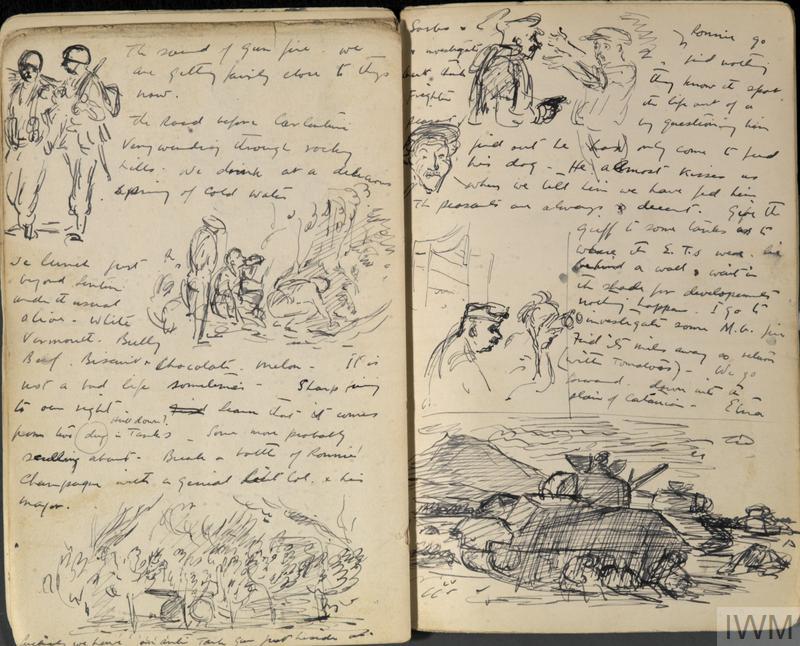 The sound of gun fire. we
are getting fairly close to things
now.
The road before Carlentini
very winding through rocky
hills. we drank at a delicious
spring of cold water
we lunch just
beyond Lentini
under the usual
olive. White
Vermouth. Bully
Beef. Biscuit & Chocolate. melon. It is
not a bad life sometimes - Sharp
to our right learn that it comes
from two dug in Tanks - Some more probably
about. Break a bottle of Ronnie's
Champagne with a genial Col. & his
major.
luckily we have anti Tank gun just beside
Ronnie go
& investigate find nothing
but they know it spot
frighten the life out of a
peasant by questioning him
find out he has only come to feed
his dog - He almost kisses us
when we tell him we have fed him
The peasants are always decent. Give the
guff to some tanks as to
where the E.T.s were. lie
behind a wall & wait in
the shade for developments
nothing happens. I go to
investigate some M.G. fire
Find it miles away & return
(with Tomatoes) - We go
forward down into the
plain of Catania - Etna
IWM